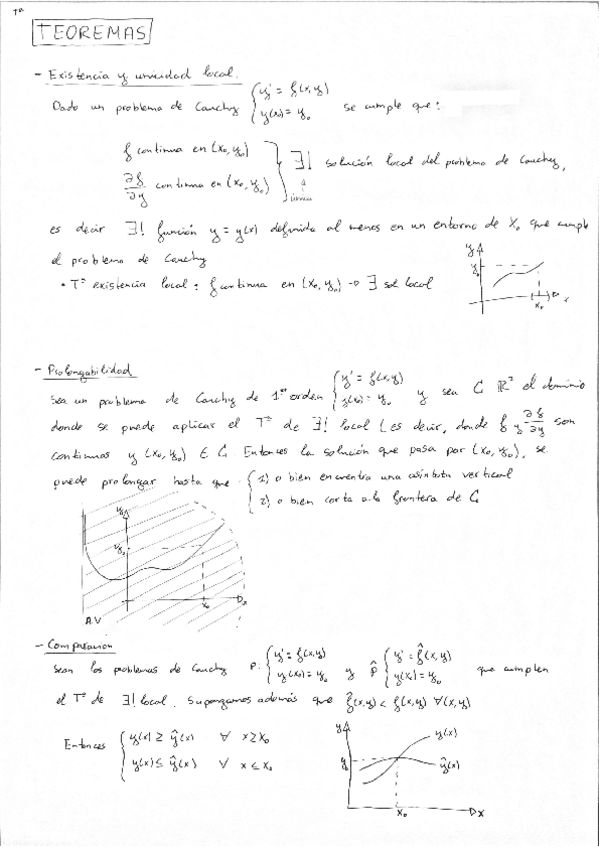 Tª
TEOREMAS
- Existencia y unicidad local.
Dado un problema de Cauchy { y' = f(x,y) se cumple que:
y(x₀) = y₀
f continua en (x₀, y₀)
∂f/∂y continua en (x₀, y₀) } ∃! solución local del problema de Cauchy,
única
es decir ∃! función y = y(x) definida al menos en un entorno de x₀ que cumple
el problema de Cauchy
• Tª existencia local: f continua en (x₀, y₀) → ∃ sol local
y
y₀
x₀ x
- Prolongabilidad
Sea un problema de Cauchy de 1er orden { y' = f(x,y) y sea G ℝ² el dominio
y(x₀) = y₀
donde se puede aplicar el Tª de ∃! local (es decir, donde f y ∂f/∂y son
continuas y (x₀, y₀) ∈ G. Entonces la solución que pasa por (x₀, y₀), se
puede prolongar hasta que: { 1) o bien encuentra una asíntota vertical
2) o bien corta a la frontera de G
y
y₀
x₀
A.V
- Comparacion
Sean los problemas de Cauchy P: { y' = f(x,y) y P̂ { y' = f̂(x,y) que cumplen
y(x₀) = y₀ y(x₀) = y₀
el Tª de ∃! local. Supongamos además que f̂(x,y) < f(x,y) ∀(x,y)
Entonces { y(x) ≥ ŷ(x) ∀ x ≥ x₀
y(x) ≤ ŷ(x) ∀ x ≤ x₀
y
y(x)
y₀
ŷ(x)
x₀ x